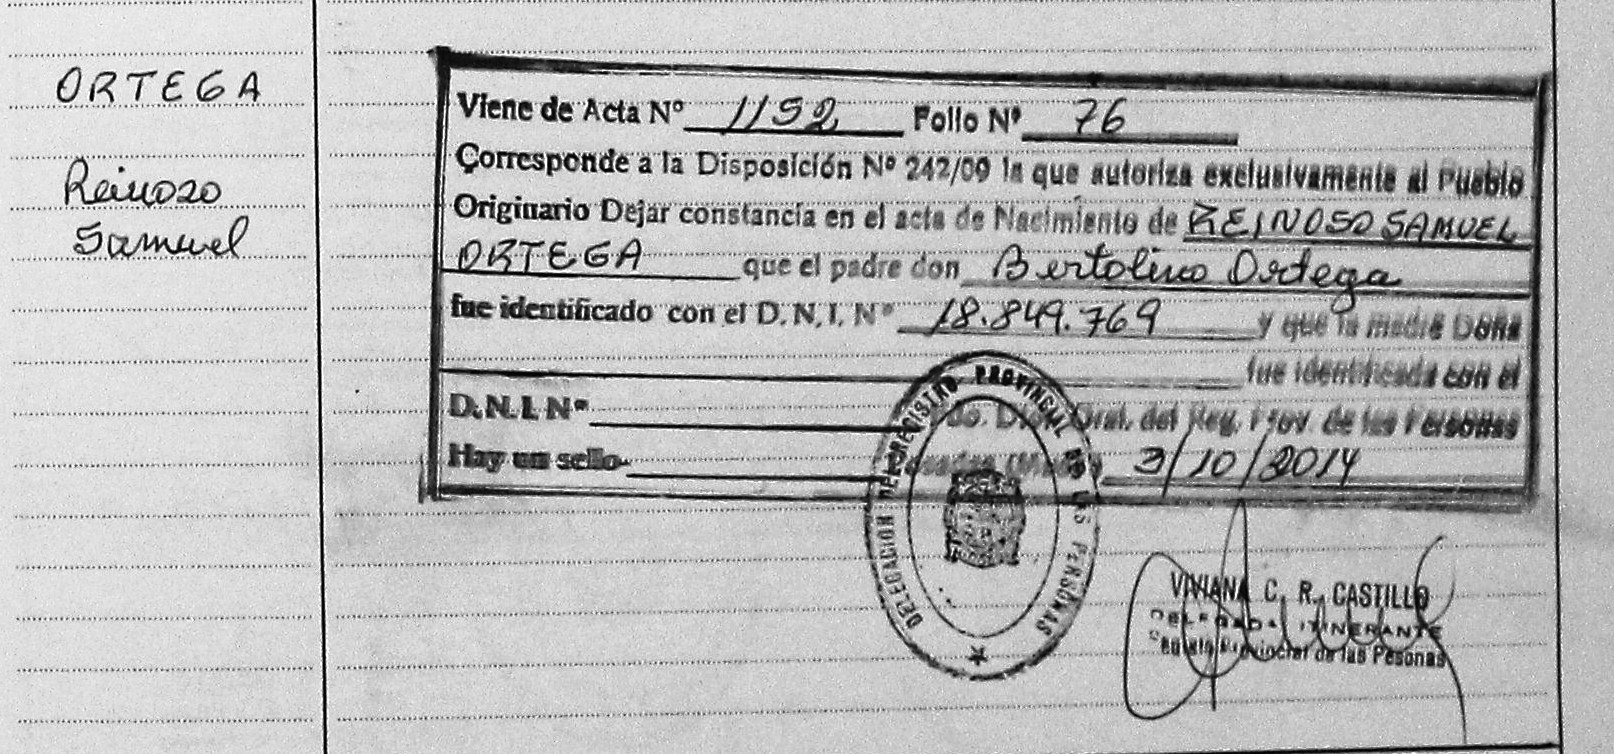 ORTEGA
Reinoso
Samuel
Viene de Acta Nº 1152 Folio Nº 76
Corresponde a la Disposición Nº 242/09 la que autoriza exclusivamente al Pueblo
Originario Dejar constancia en el acta de Nacimiento de REINOSO SAMUEL
ORTEGA que el padre don Bertolino Ortega
fue identificado con el D.N.I. Nº 18.849.769 y que la madre Doña
fue identificada con el
D.N.I. Nº Gral. del Reg. Prov. de las Personas
Hay un sello 3/10/2014
DELEGACION DEL REGISTRO PROVINCIAL DE LAS PERSONAS
VIVIANA C. R. CASTILLO
DELEGADA ITINERANTE
Provincial de las Pesonas